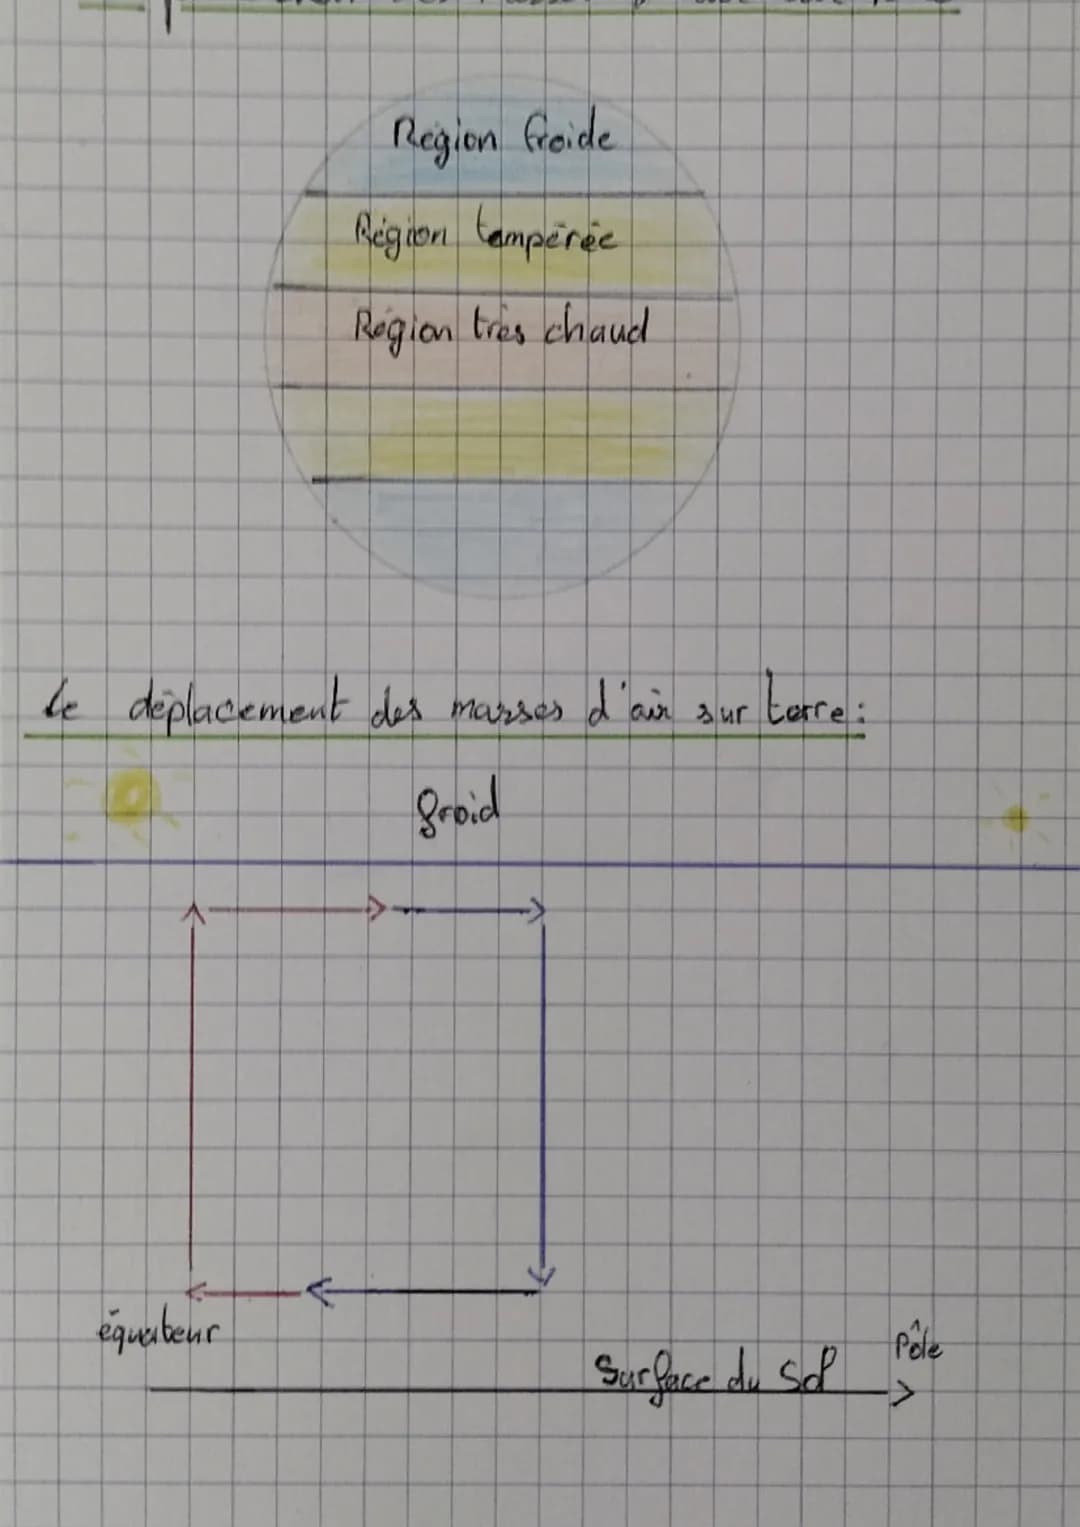 Région froide
Région tempérée
Région très chaud
Le déplacement des masses d'air sur terre:
froid
équateur
Pôle
Surface du sol